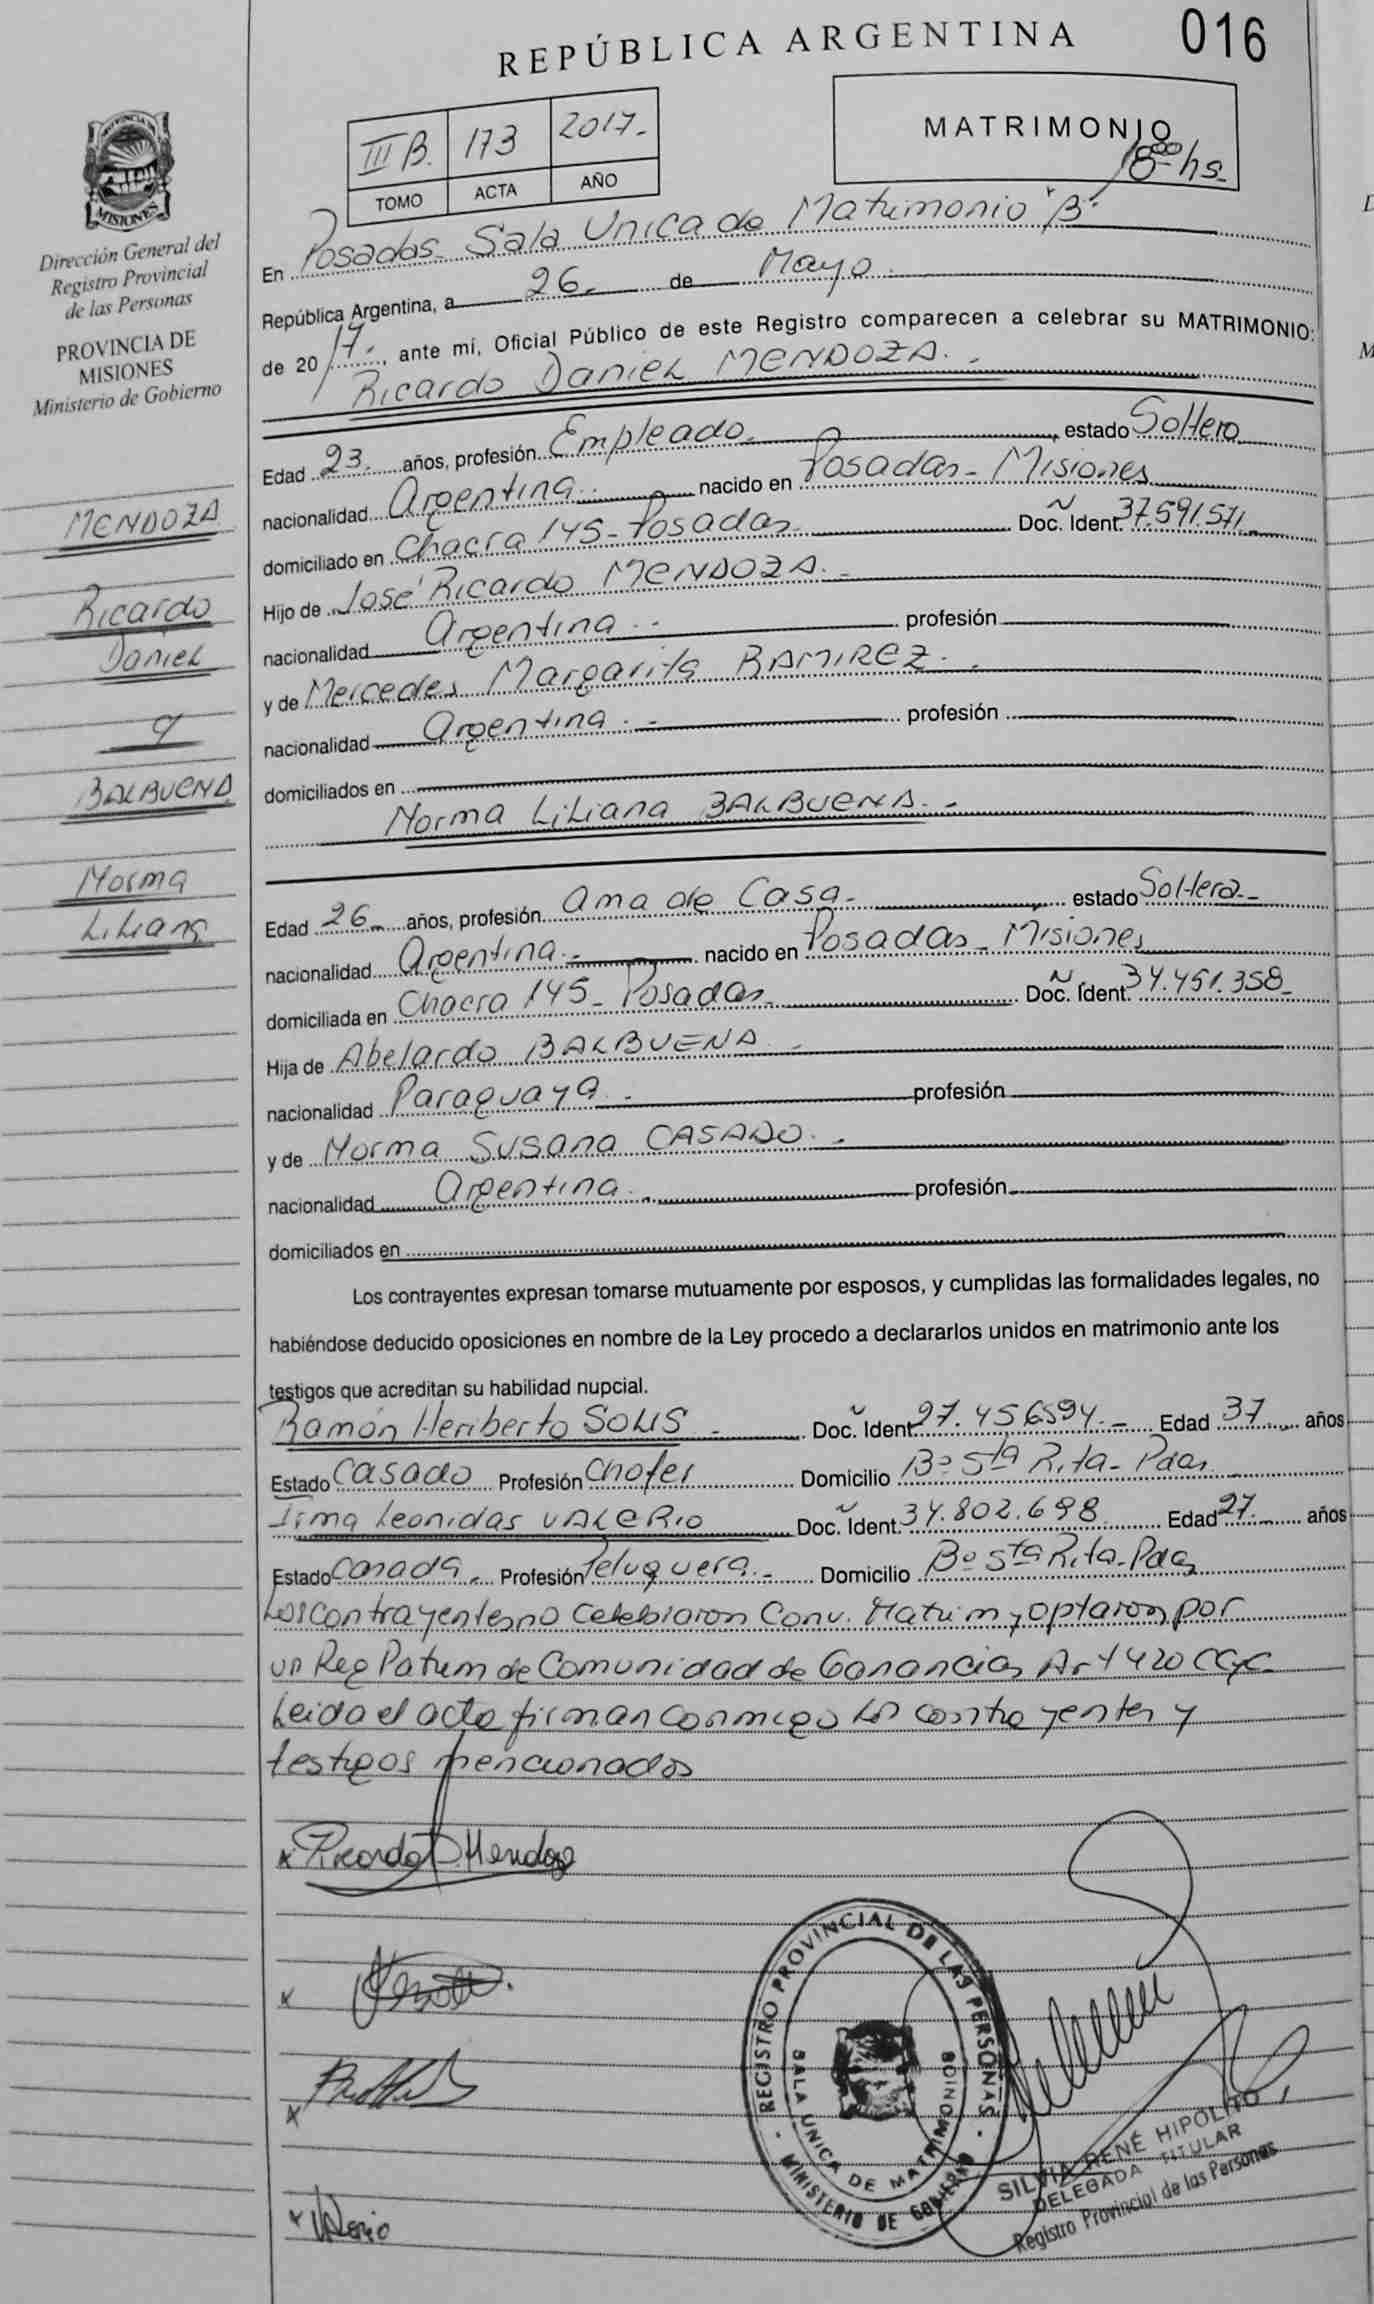 REPÚBLICA ARGENTINA
016
PROVINCIA DE
MISIONES
Dirección General del
Registro Provincial
de las Personas
PROVINCIA DE
MISIONES
Ministerio de Gobierno
III B. 173 2017.-
TOMO ACTA AÑO
MATRIMONIO
18 00 hs.-
En Posadas- Sala Unica de Matrimonio "B"-
República Argentina, a 26.- de Mayo.-
de 2017.-, ante mí, Oficial Público de este Registro comparecen a celebrar su MATRIMONIO:
Ricardo Daniel MENDOZA.-
Edad 23.- años, profesión Empleado.- estado Soltero
nacionalidad Argentina.- nacido en Posadas- Misiones
domiciliado en Chacra 145- Posadas.- Doc. Ident. 37.591.571.-
Hijo de José Ricardo MENDOZA.-
nacionalidad Argentina.- profesión
y de Mercedes Margarita RAMIREZ.-
nacionalidad Argentina.- profesión
domiciliados en
Norma Liliana BALBUENA.-
Edad 26- años, profesión Ama de Casa- estado Soltera-
nacionalidad Argentina.- nacido en Posadas- Misiones
domiciliada en Chacra 145- Posadas- Doc. Ident. 34.451.358-
Hija de Abelardo BALBUENA.-
nacionalidad Paraguaya.- profesión
y de Norma Susana CASADO.-
nacionalidad Argentina.- profesión
domiciliados en
Los contrayentes expresan tomarse mutuamente por esposos, y cumplidas las formalidades legales, no
habiéndose deducido oposiciones en nombre de la Ley procedo a declararlos unidos en matrimonio ante los
testigos que acreditan su habilidad nupcial.
Ramón Heriberto SOLIS- Doc. Ident. 27.456594.- Edad 37 años
Estado Casado Profesión Chofer Domicilio Bº Sta Rita- Pdas
Irma Leonidas VALERIO Doc. Ident. 34.802.698 Edad 27.- años
Estado Casada- Profesión Peluquera.- Domicilio Bº Sta Rita- Pdas
Los contrayentes no celebraron Conv. Matrim y optaron por
un Reg Patrim de Comunidad de Ganancias Art 420 CCyC
Leida el acta firman conmigo los contrayentes y
testigos mencionados
MENDOZA
Ricardo
Daniel
y
BALBUENA
Norma
Liliana
x Ricardo D. Mendoza
x
x
x Valerio
REGISTRO PROVINCIAL DE LAS PERSONAS
SALA UNICA DE MATRIMONIOS
MINISTERIO DE GOBIERNO
SILVIA RENÉ HIPÓLITO
DELEGADA TITULAR
Registro Provincial de las Personas